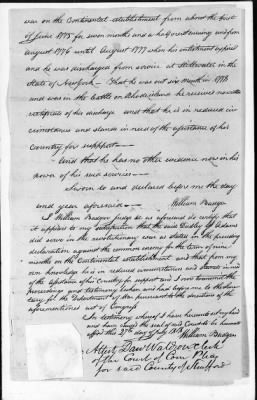 was on the Continental establishment from about the first
of June 1775 for seven months and a half and enlisting until from
August 1776 until August 1777 when his enlistment expired
and he was discharged from service at Stillwater in the
State of New York — That he was out six months in 1778
and was in the battle on Rhode island he received no written
certificate of his discharge and that he is in reduced cir
cumstance and stands in need of the assistance of his
Country for support —
And that he has no other evidence now in his
power of his said services —
Sworn to and declared before me the day
and year aforesaid —
William Badger
I William Badger judge &c as aforesaid do certify that
it appears to my satisfaction that the said Adams
did serve in the revolutionary war as stated in the preceding
declaration against the common enemy for the term of nine
months on the Continental establishment and that from my
own knowledge he is in reduced circumstances and stands in need
of the assistance of his Country for support and I now transmit the
proceedings and testimony taken and had before me to the Secre
tary for the Department of War pursuant to the directions of the
aforementioned act of Congress
In testimony whereof I have hereunto set my hand
and have caused the seal of said Court to be hereunto
affixed this 27th day of July 1818
William Badger
Attest Danl Waldron Clerk
of the Court of Com Pleas
for said County of Strafford